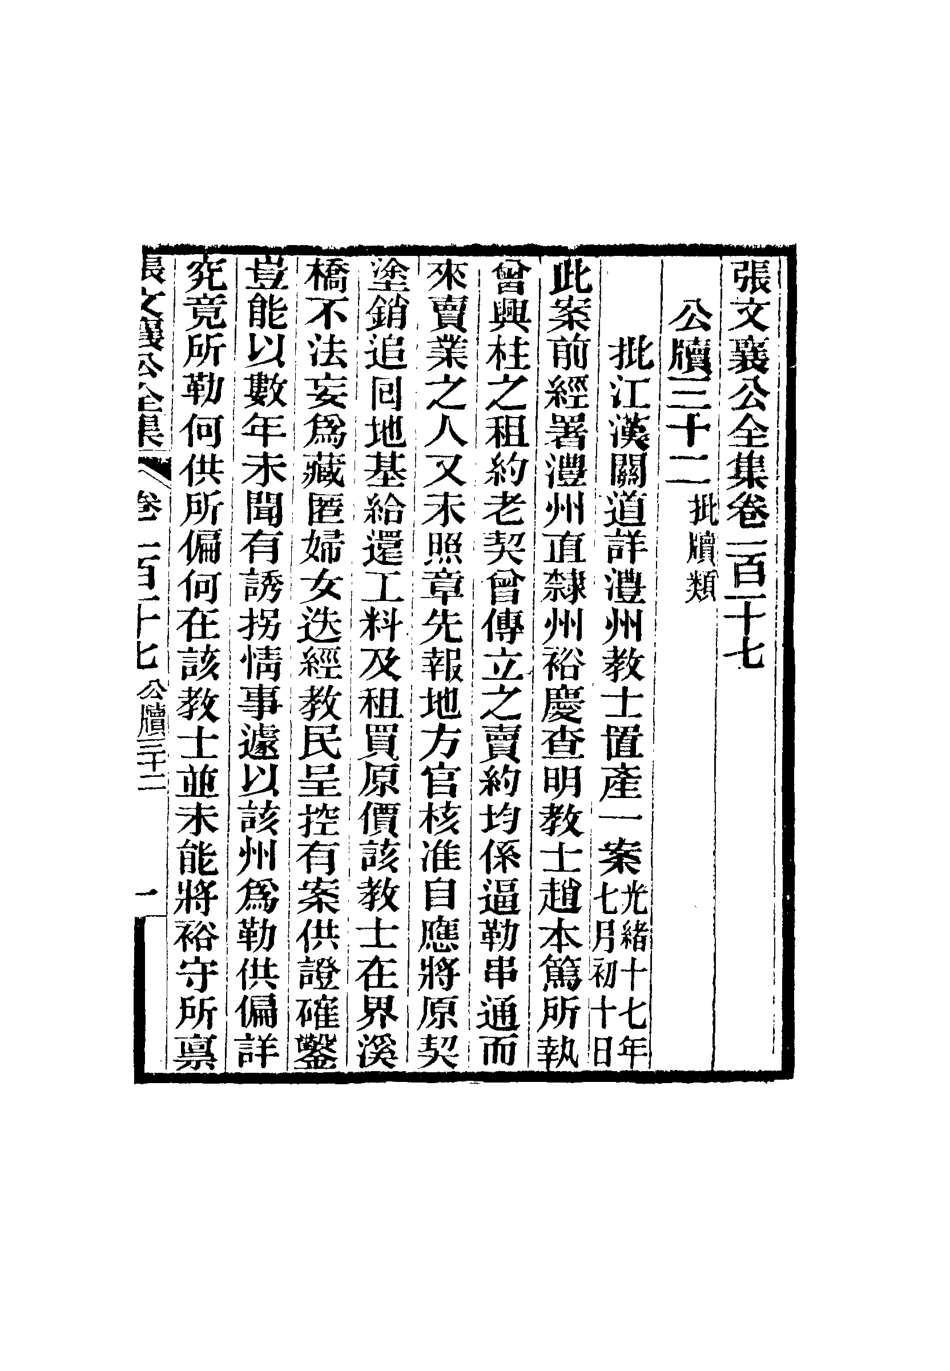 張文襄公全集卷一百二十七
公牘三十二批牘類
批江漢關道詳澧州教士置產一案光緒十七年七月初十日
此案前經署澧州直隸州裕慶查明教士趙本篤所執
曾興柱之租約老契曾傳立之賣約均係逼勒串通而
來賣業之人又未照章先報地方官核准自應將原契
塗銷追回地基給還工料及租買原價該教士在界溪
橋不法妄爲藏匿婦女迭經教民呈控有案供證確鑿
豈能以數年未聞有誘拐情事遽以該州爲勒供偏詳
究竟所勒何供所偏何在該教士並未能將裕守所禀
張文襄公全集 卷一百二十七 公牘三十二 一